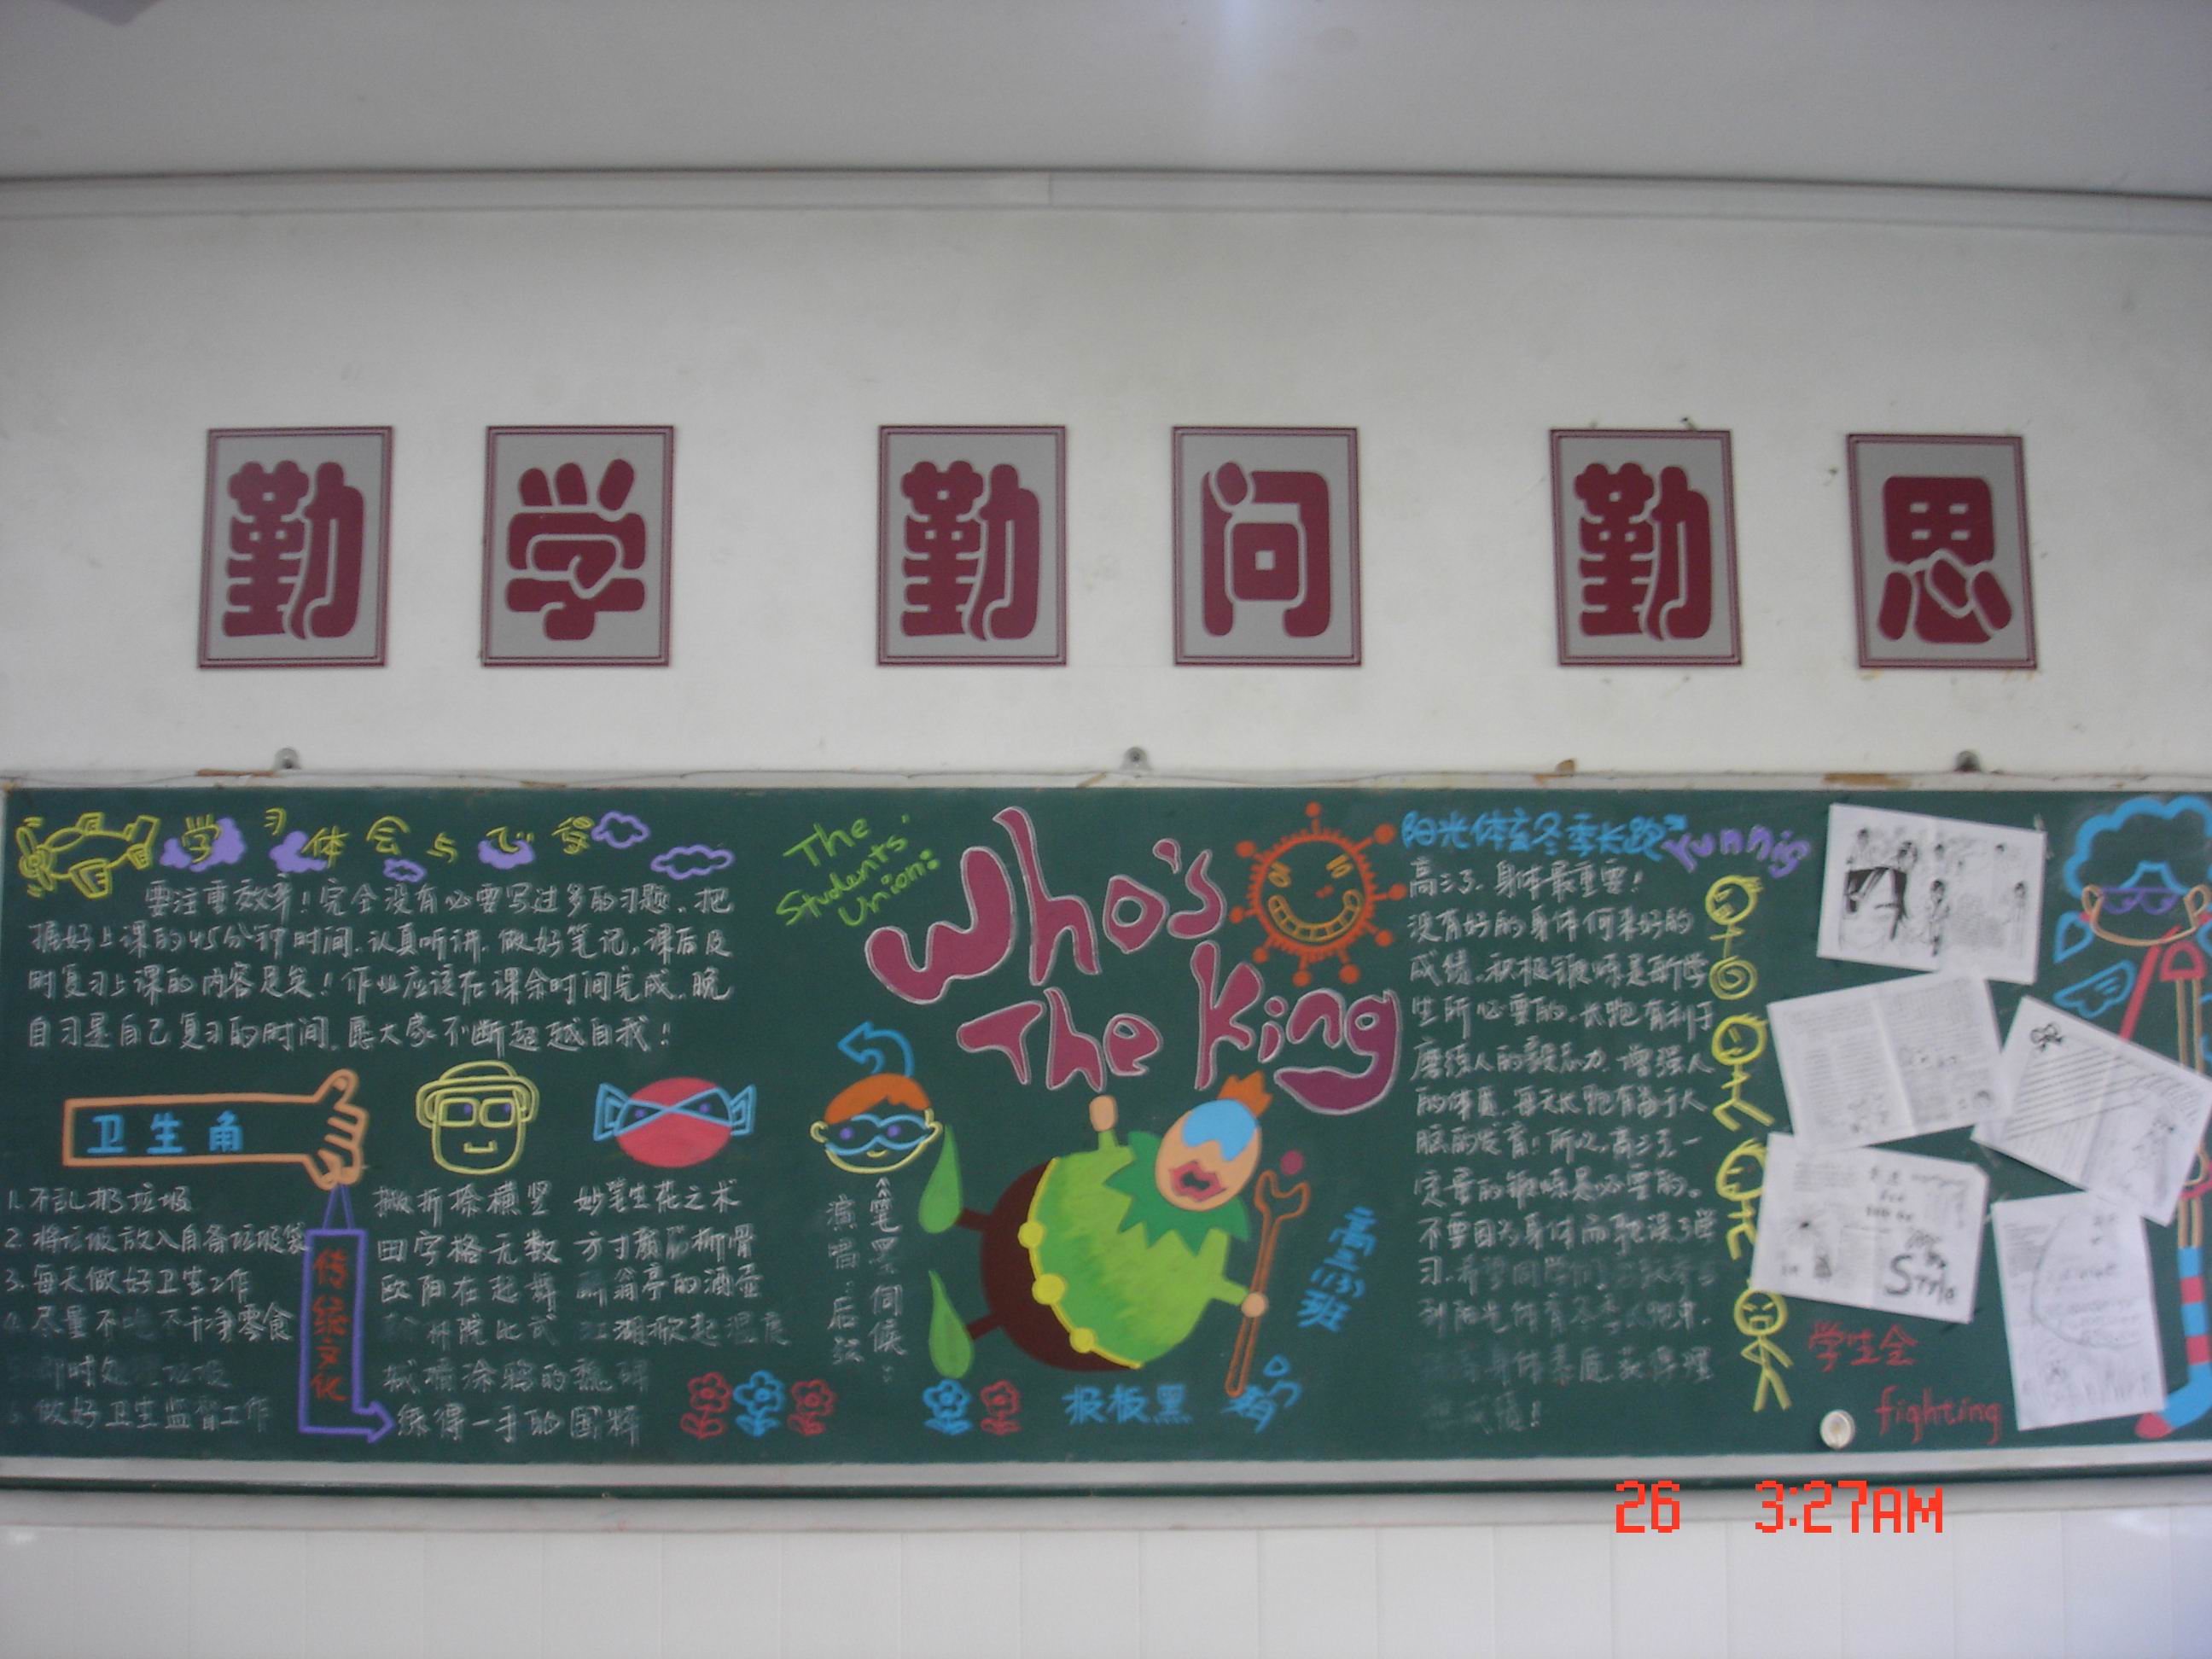 勤 学 勤 问 勤 思
学习体会与心得
要注重效率！完全没有必要写过多的习题。把
握好上课的45分钟时间，认真听讲，做好笔记，课后及
时复习上课的内容足矣！作业应该在课余时间完成，晚
自习是自己复习的时间，愿大家不断超越自我！
卫生角
1.不乱扔垃圾
2.将垃圾放入自备垃圾袋
3.每天做好卫生工作
4.尽量不吃不干净零食
即时处理垃圾
做好卫生监督工作
传统文化
撇折捺横竖 妙笔生花之术
田字格无数 方寸颜筋柳骨
欧阳在起舞 醉翁亭的酒壶
翰林院比武 江湖掀起温度
练得一手的国粹
演唱：后弦
笔墨伺候：
The
Students'
Union:
Who's
The King
高三(3)班
报板黑
阳光体育冬季长跑
runnig
高三了，身体最重要！
没有好的身体何来好的
成绩，积极锻炼是新学
生所必要的，长跑有利于
磨练人的毅志力，增强人
的体质，每天长跑有备于大
脑的发育！所以，高三了一
定量的锻炼是必要的。
不要因为身体而耽误了学
习，希望同学们
到阳光体育冬季长跑中，
Style
学生会
fighting
26 3:27AM